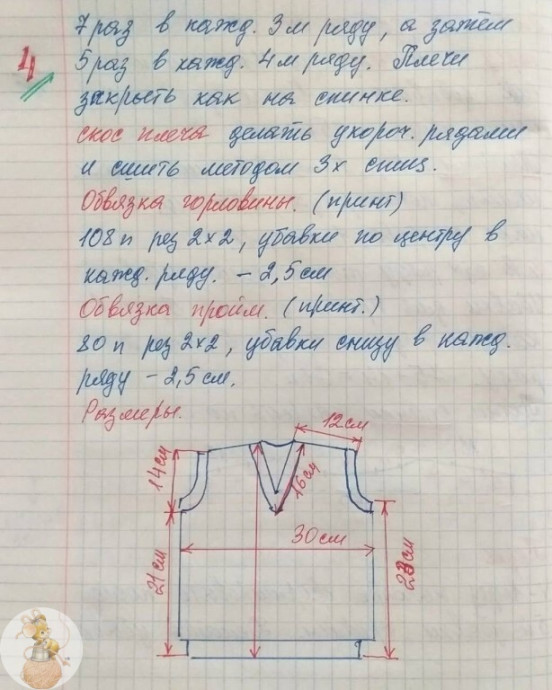 4
7 раз в кажд. 3м ряду, а затем
5 раз в кажд. 4м ряду. Плечи
закрыть как на спинке.
скос плеча делать укороч. рядами
и сшить методом 3х спиц.
Обвязка горловины. (принт)
108 п рез 2×2, убавки по центру в
кажд. ряду. – 2,5 см
Обвязка пройм. (принт.)
80 п рез 2×2, убавки снизу в кажд.
ряду – 2,5 см.
Размеры.
12 см
14 см
16 см
30 см
21 см